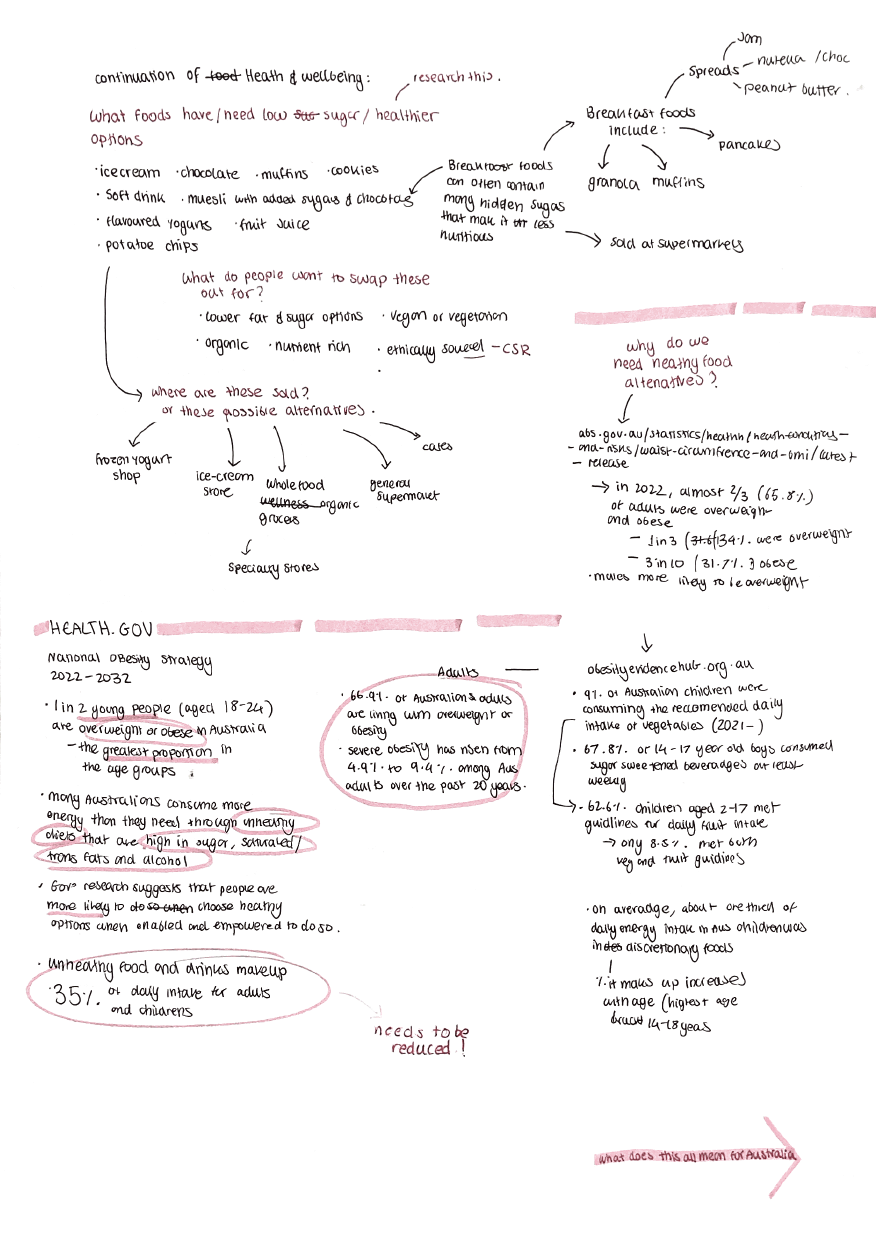 continuation of food Heath & wellbeing :
research this .
What foods have/need low sus sugar/ healthier
options
• icecream • chocolate • muffins • cookies
• Soft drink • muesli with added sugars & chocolate
• flavoured yogurts • fruit juice
• potatoe chips
Breakfast foods
can often contain
many hidden sugas
that mak it less
nutritious
Breakfast foods
include :
Spreads
Jam
nutella /choc
peanut butter .
pancakes
granola muffins
sold at supermarkets
What do people want to swap these
out for?
• Lower fat & sugar options • Vegan or vegetarian
• organic • nutrient rich • ethically sourced - CSR
where are these sold?
or these possible alternatives .
frozen yogurt
shop
ice-cream
store
whole food
wellness organic
grocers
general
supermarket
cafes
specialty stores
why do we
need heathy food
altenatives?
abs.gov.au/statistics/health/health-conditions-
-and-risks/waist-circumfrence-and-bmi/latest-
- release
→ in 2022, almost 2/3 (65.8%)
of adults were overweight
and obese
- 1 in 3 (31.6/34%. were overweight
- 3 in 10 (31.7%. } obese
• males more likely to be overweight
HEALTH.GOV
National Obesity Strategy
2022-2032
• 1 in 2 young people (aged 18-24)
are overweight or obese in Australia
- the greatest proportion in
the age groups .
• many Australians consume more
energy than they need through unhealthy
diets that are high in sugar, saturated/
trans fats and alcohol
• Gov research suggests that people are
more likely to do so when choose healthy
options when enabled and empowered to do so.
• unhealthy food and drinks makeup
35%. of daily intake for adults
and childrens
needs to be
reduced!
Adults
• 66.9%. of Australians adults
are living with overweight or
obesity
• severe obesity has risen from
4.9%. to 9.4%. among Aus
adults over the past 20 years.
obesityevidencehub.org.au
• 9%. of Australian children were
consuming the recomended daily
intake of vegetables (2021-)
• 67.8%. of 14-17 year old boys consumed
sugar sweetened beveradges at least
weekly
• 62.6%. children aged 2-17 met
guidlines for daily fruit intake
→ only 8.5%. met both
veg and fruit guidlines
• on averadge, about one third of
daily energy intake in Aus children was
in discretionary foods
%. it makes up increases
with age (highest age
14-18 yeas
what does this all mean for Australia